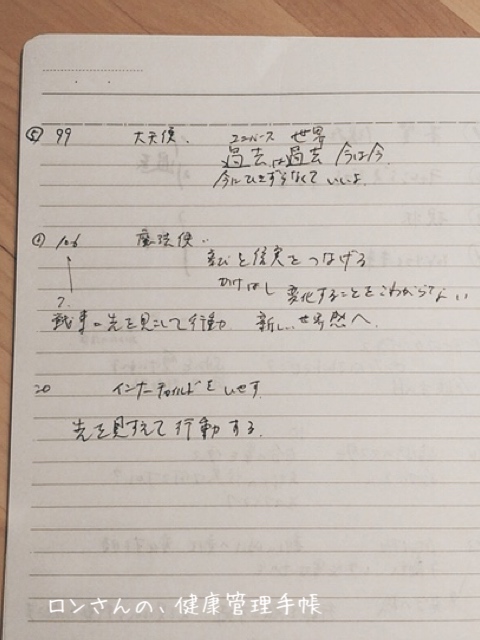 ⑤ 99 大天使. ユニバース 世界
過去は過去 今は今.
今にひきずらなくていいよ.
① 106 魔法使..
と信実をつなげる
かけはし 変化することをこわがらない
7. 戦車 先を見こして行動 新しい世界感へ.
20 インナーチャイルドをいやす
先を見すえて行動する.
ロンさんの、健康管理手帳